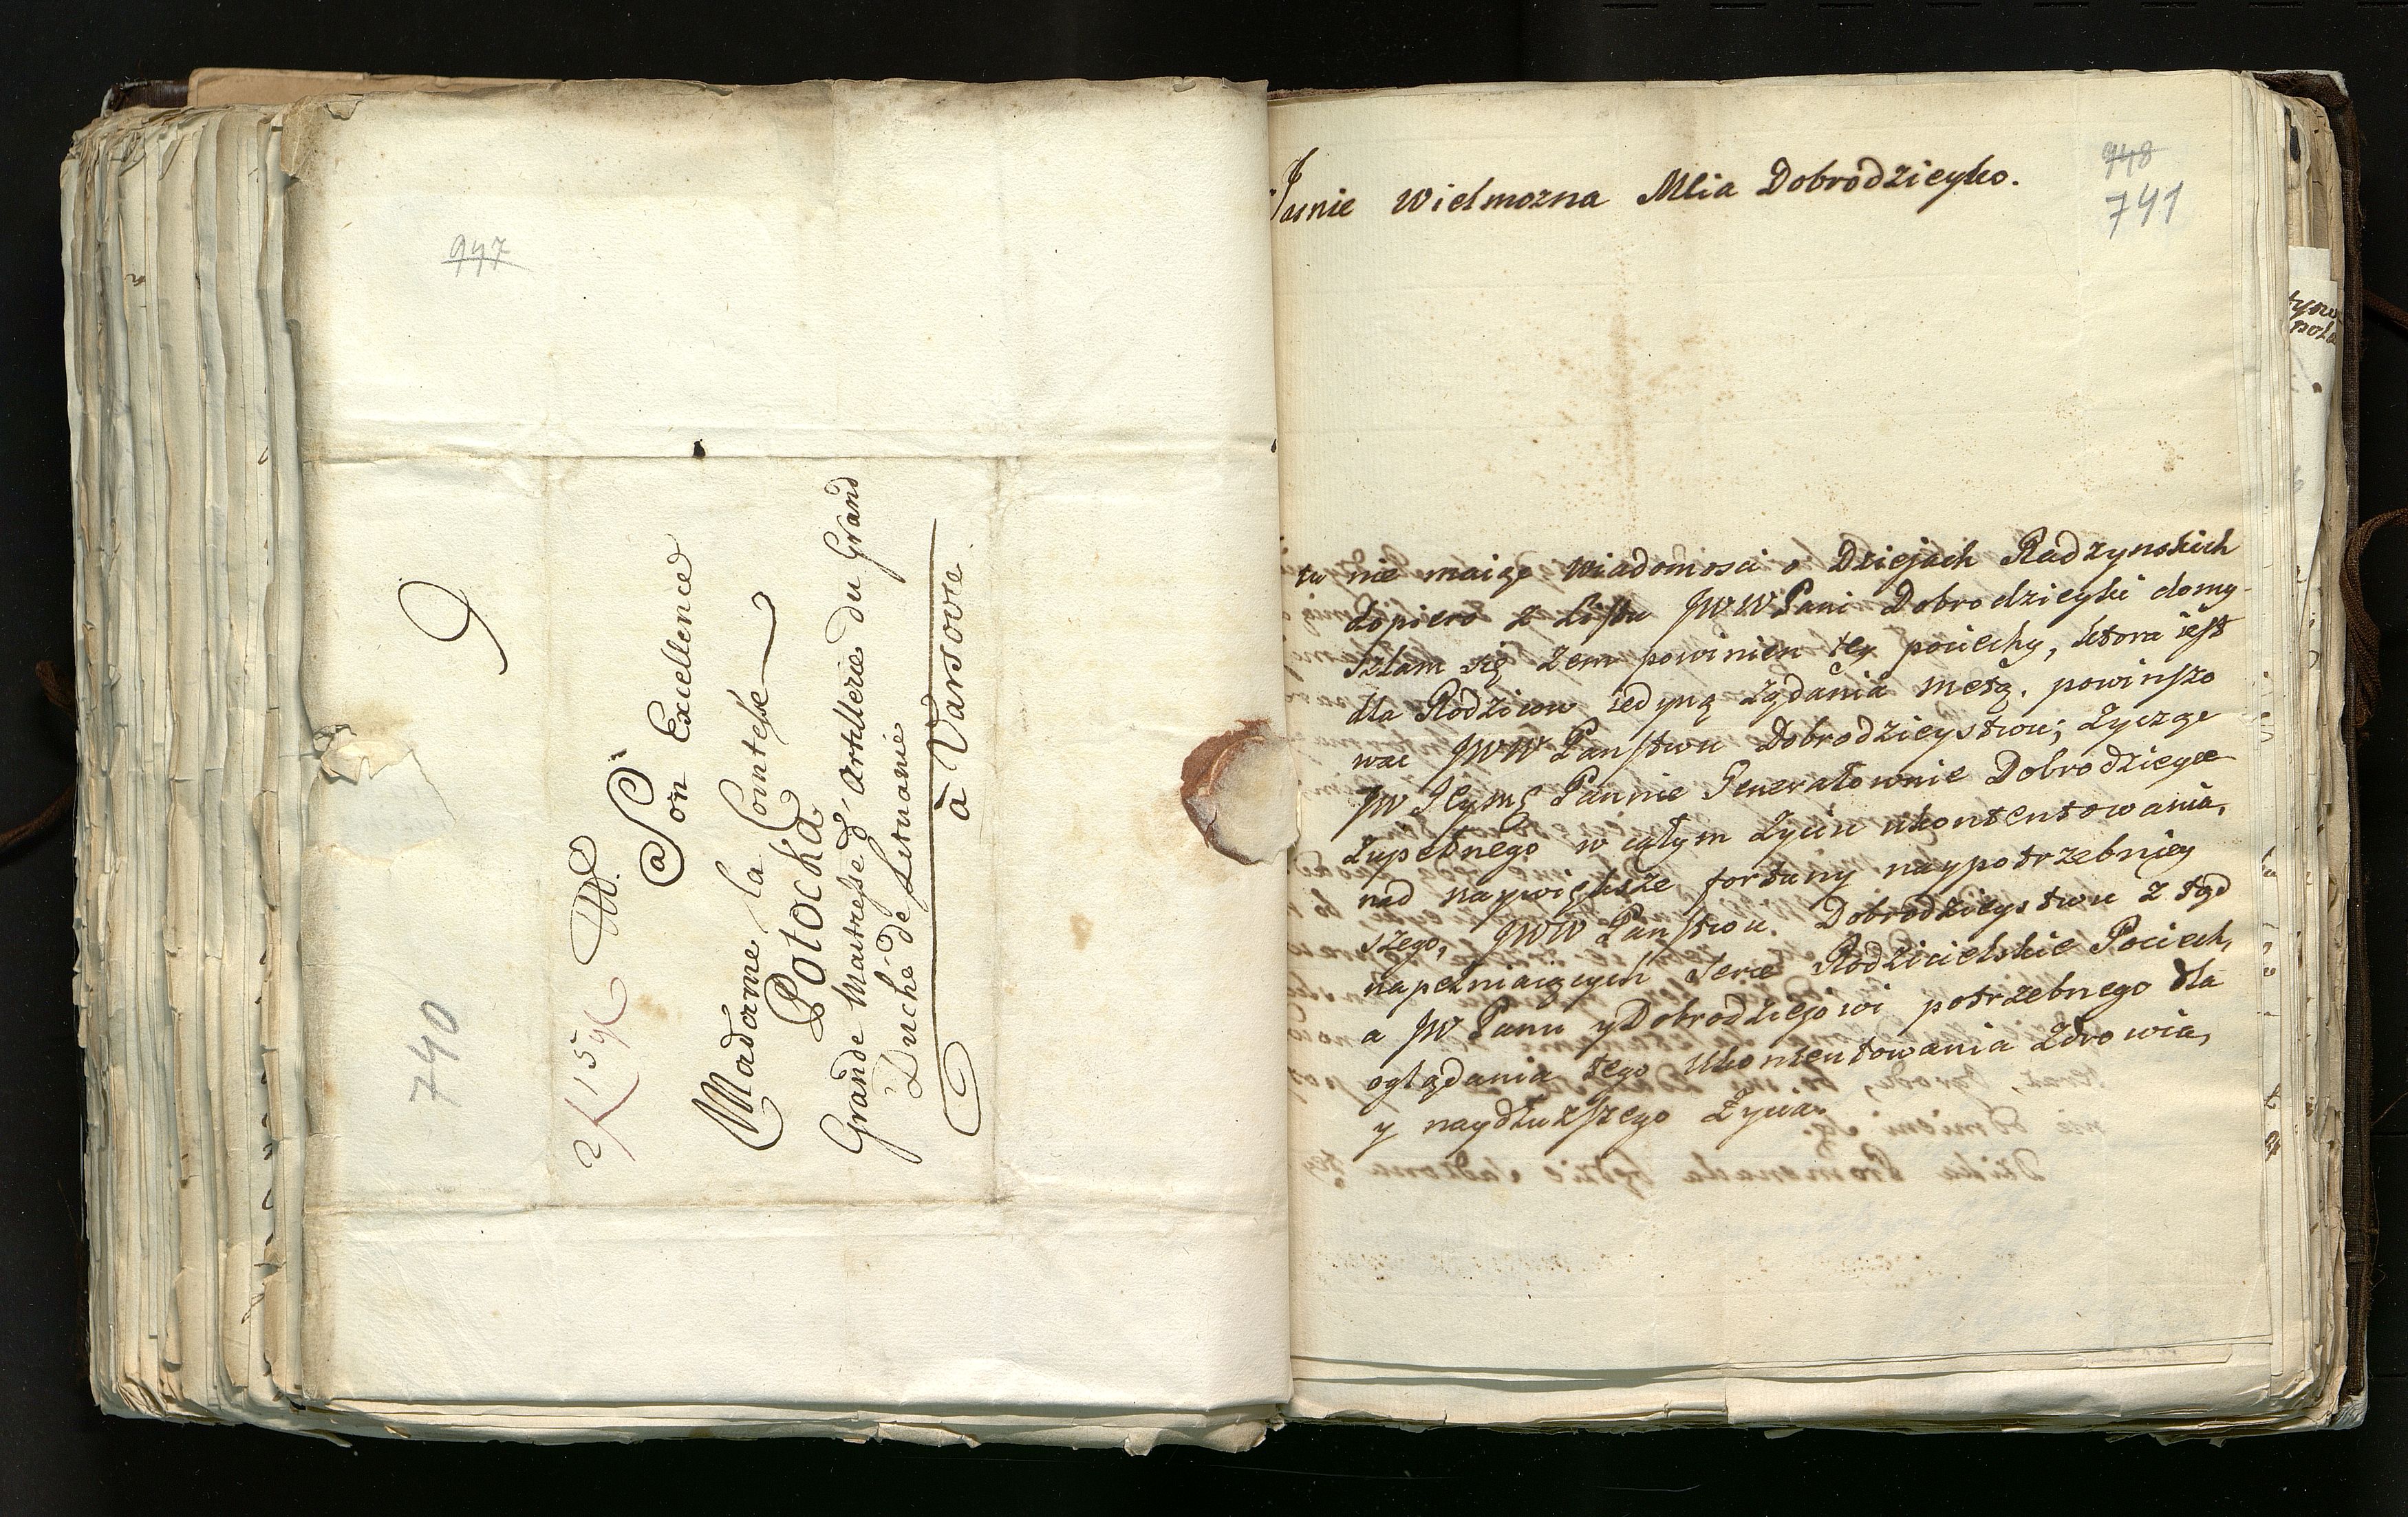 947
740
9
à Son Excellence
Madame la Comtesse
Potocka
Grande Maitresse d'Artillerie du Grand
Duché de Lituanie
à Varsovie
948
741
Jasnie Wielmozna Mcia Dobrodzieyko.
tu nie maiąc wiadomosci o Dziejach Radzynskich
dopiero z Listu JWWPani Dobrodzieyki domy-
szlam się zem powinien tey pociechy, ktora iest
dla Rodzicow iedyną żądania metą. powinszo
wac JWW Panstwu Dobrodzieystwu; Życzę
JW Jeymę Pannie Generałownie Dobrodzieyce
zupełnego w całym życiu ukontentowania,
nad naywiększe fortuny naypotrzebniey
szego, JWW Panstwu Dobrodzieystwu z tąd
napełniaiących serce Rodzicielskie Pociech,
a JW Panu y Dobrodziejowi potrzebnego dla
oglądania tego Ukontentowania Zdrowia,
y naydłuższego Życia.